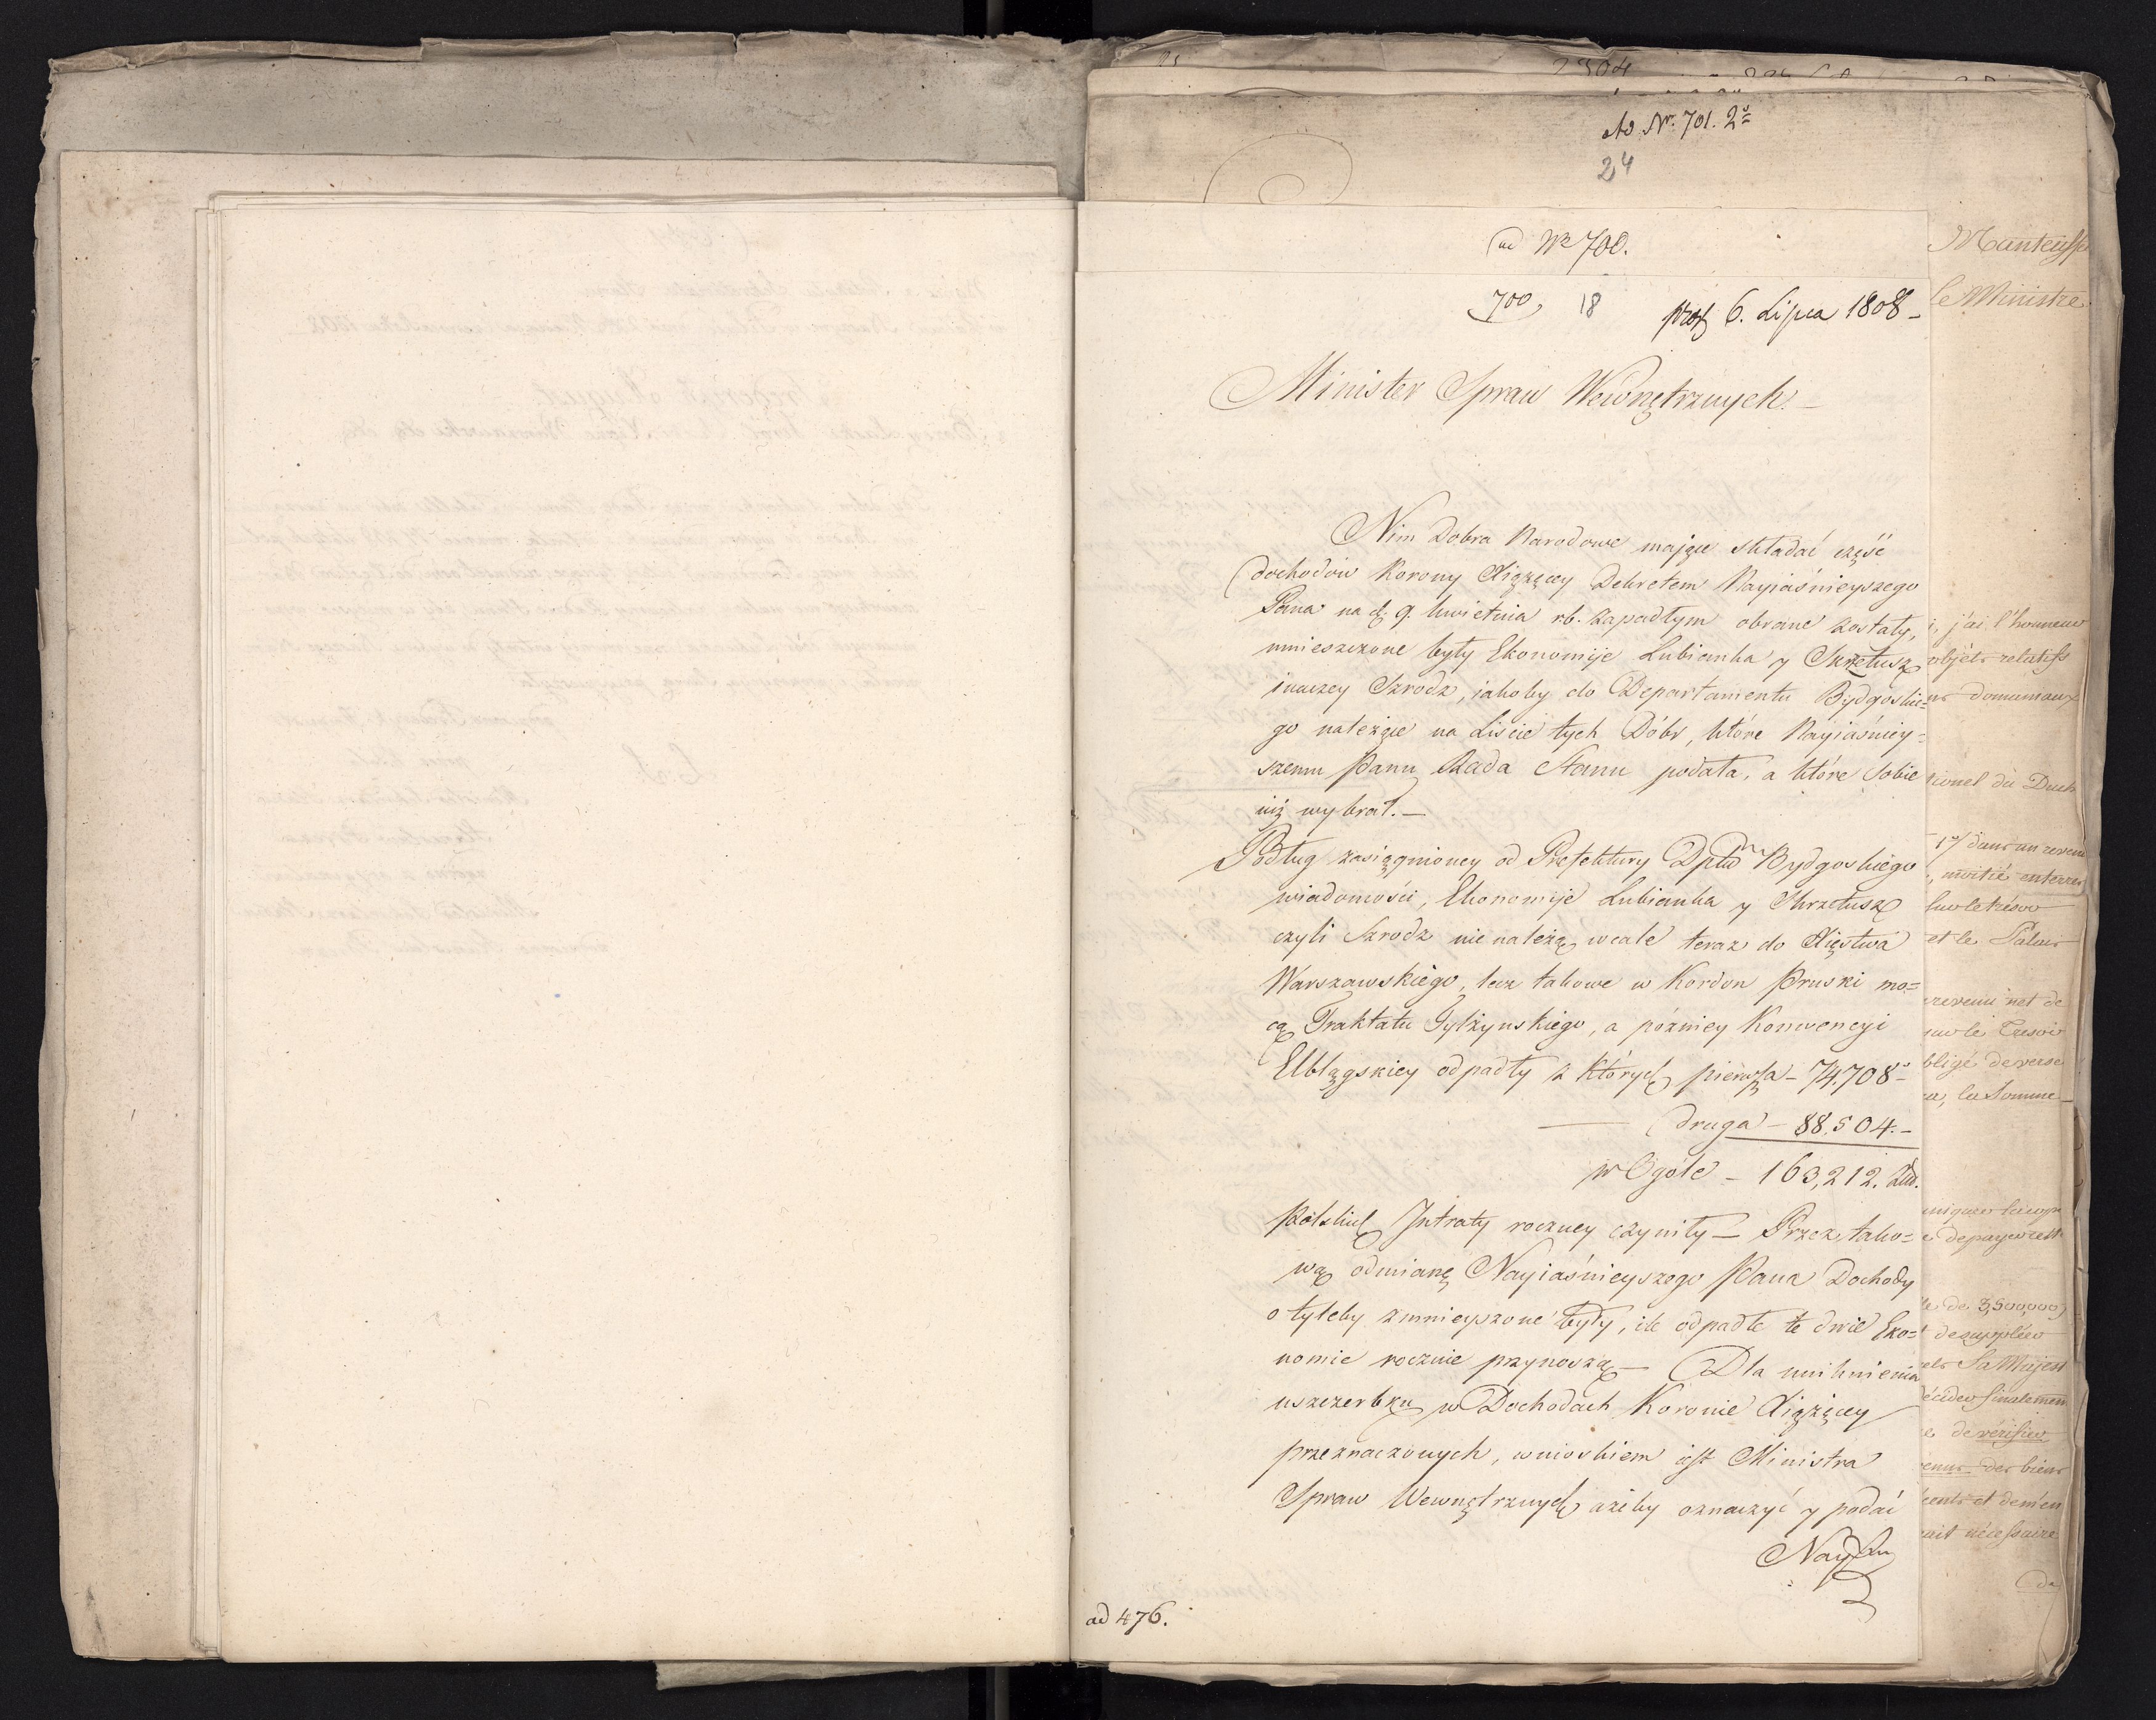 ad Nr. 701. 2
24
ad Nr 700.
700, 18 6. Lipca 1808 –
Minister Spraw Wewnętrznych. –
Nim Dobra Narodowe mające składać część
dochodów Korony Xiążęcey Dekretem Nayiaśnieyszego
Pana na d. 9. kwietnia r.b. zapadłym obrane zostały,
umieszczone były Ekonomije Lubianka y Skrzetusz
inaczey Szrodz, iakoby do Departamentu Bydgoskie=
go należące na Liście tych Dóbr, które Nayiaśniey=
szemu Panu Rada Stanu podała, a które sobie
iuż wybrał. –
Podług zasiągnioney od Prefektury Dptu Bydgoskiego
wiadomości, Ekonomije Lubianka y Skrzetusz
czyli Szrodz nie należą wcale teraz do Xięstwa
Warszawskiego, lecz takowe w Kordon Pruski mo=
cą Traktatu Tylżynskiego, a pózniey Konwencyi
Elblągskiey odpadły z których pierwsza – 74,708 –
— druga – 88.504. –
w Ogóle – 163,212. Złd.
Polskich Intraty roczney czyniły – Przez tako=
wą odmianę Nayiaśnieyszego Pana Dochody
o tyleby zmnieyszone były, ile odpadłe te dwie Eko=
nomie rocznie przynoszą – Dla uniknienia
uszczerbku w Dochodach Koronie Xiążęcey
przeznaczonych, wnioskiem iest Ministra
Spraw Wewnętrznych ażeby oznaczyć y podać
ad 476.
Manteuff
le Ministre
j'ai l'honneur
objéts relatifs
domaniaux
du Duch
17 dans un revenu
moitié enterres
sur le trésor
et le Palais
revenu net de
sur le Tresor
obligé de verser
la Somme
de payer cette
de 3,500,000
de suppléer
Sa Majest
décider finalemen
de vérifier
des biens
et demi en
nécessaire
de